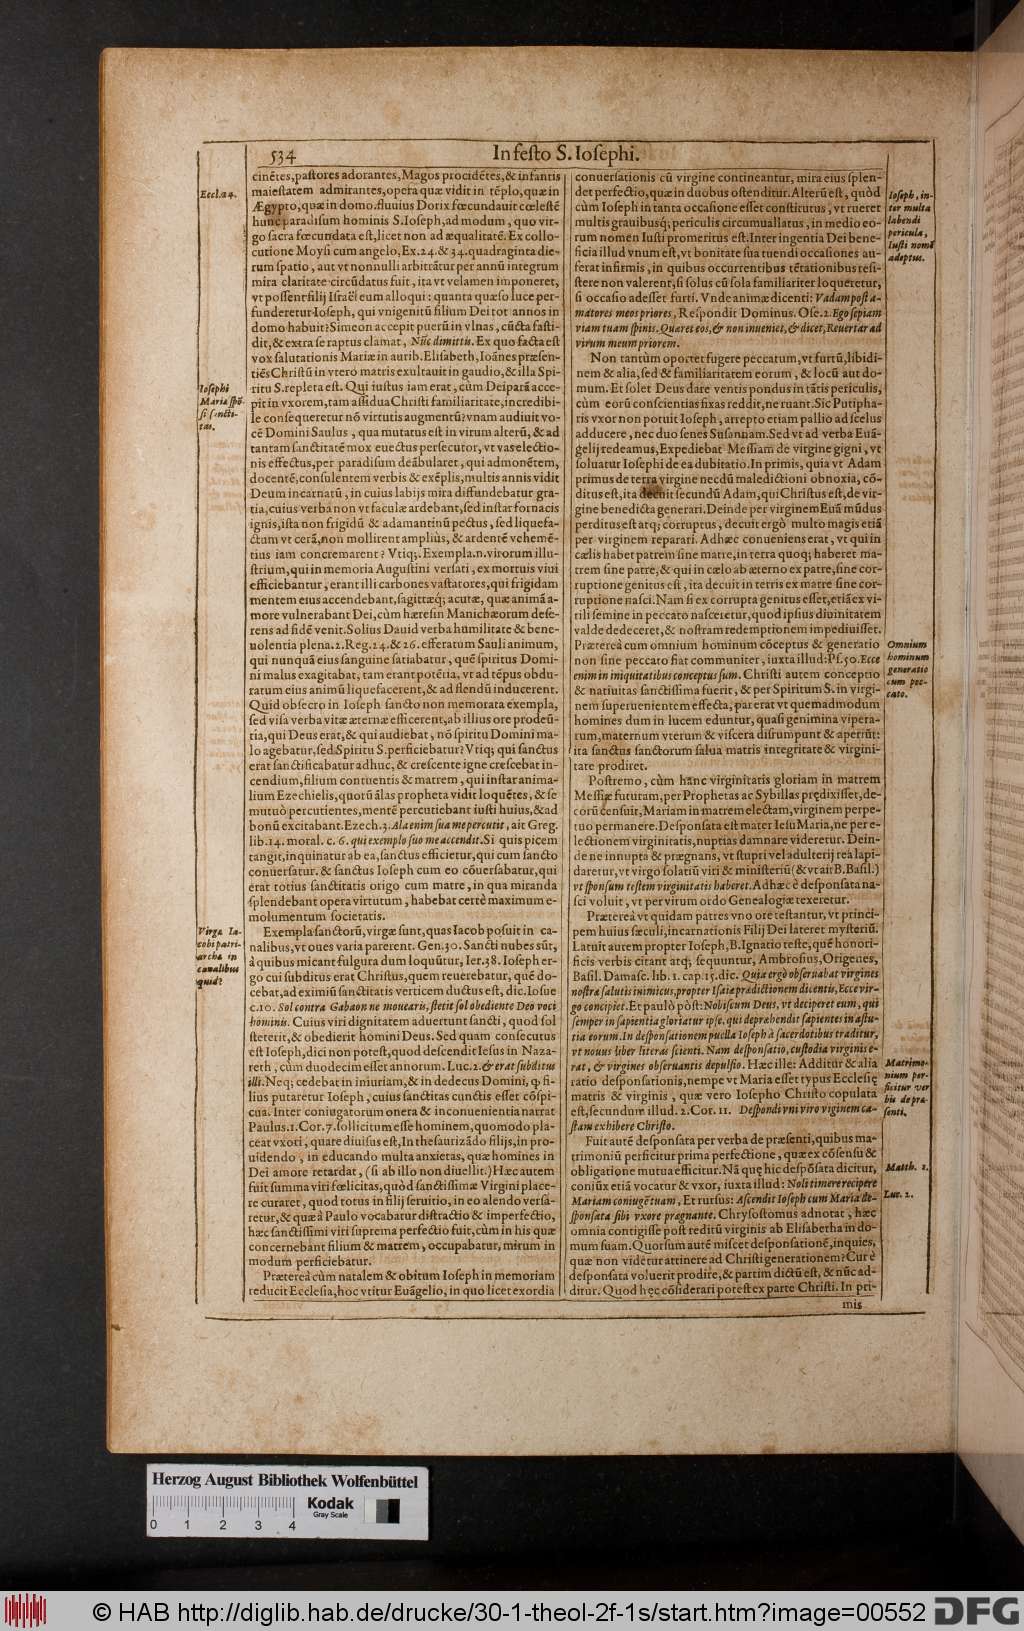 534
In festo S. Iosephi.
cinẽtes, pastores adorantes, Magos procidẽtes, & infantis
maiestatem admirantes, opera quæ vidit in tẽplo, quæ in
Ægypto, quæ in domo. fluuius Dorix fœcundauit cœlestẽ
hunc paradisum hominis S. Ioseph, ad modum, quo vir-
go sacra fœcundata est, licet non ad æqualitatẽ. Ex collo-
cutione Moysi cum angelo, Ex. 24. & 34. quadraginta die-
rum spatio, aut vt nonnulli arbitrãtur per annũ integrum
mira claritate circũdatus fuit, ita vt velamen imponeret,
vt possent filij Israël eum alloqui: quanta quæso luce per-
funderetur Ioseph, qui vnigenitũ filium Dei tot annos in
domo habuit? Simeon accepit puerũ in vlnas, cũcta fasti-
dit, & extra se raptus clamat, Nũc dimittis. Ex quo facta est
vox salutationis Mariæ in aurib. Elisabeth, Ioãnes præsen-
tiẽs Christũ in vtero matris exultauit in gaudio, & illa Spi-
ritu S. repleta est. Qui iustus iam erat, cùm Deiparã acce-
pit in vxorem, tam assidua Christi familiaritate, incredibi-
le consequeretur nõ virtutis augmentũ? vnam audiuit vo-
cẽ Domini Saulus, qua mutatus est in virum alterũ, & ad
tantam sanctitatẽ mox euectus persecutor, vt vas electio-
nis effectus, per paradisum deãbularet, qui admonẽtem,
docentẽ, consulentem verbis & exẽplis, multis annis vidit
Deum incarnatũ, in cuius labijs mira diffundebatur gra-
tia, cuius verba non vt faculæ ardebant, sed instar fornacis
ignis, ista non frigidũ & adamantinũ pectus, sed liquefa-
ctum vt cerã, non mollirent ampliùs, & ardentẽ vehemẽ-
tius iam concremarent? Vtiq;. Exempla. n. virorum illu-
strium, qui in memoria Augustini versati, ex mortuis viui
efficiebantur, erant illi carbones vastatores, qui frigidam
mentem eius accendebant, sagittæq; acutæ, quæ animã a-
more vulnerabant Dei, cùm hæresin Manichæorum dese-
rens ad fidẽ venit. Solius Dauid verba humilitate & bene-
uolentia plena. 1. Reg. 24. & 26. efferatum Sauli animum,
qui nunquã eius sanguine satiabatur, quẽ spiritus Domi-
ni malus exagitabat, tam erant potẽtia, vt ad tẽpus obdu-
ratum eius animũ liquefacerent, & ad flendũ inducerent.
Quid obsecro in Ioseph sancto non memorata exempla,
sed visa verba vitæ æternæ efficerent, ab illius ore prodeũ-
tia, qui Deus erat, & qui audiebat, nõ spiritu Domini ma-
lo agebatur, sed Spiritu S. perficiebatur? Vtiq; qui sanctus
erat sanctificabatur adhuc, & crescente igne crescebat in-
cendium, filium contuentis & matrem, qui instar anima-
lium Ezechielis, quorũ alas propheta vidit loquẽtes, & se
mutuò percutientes, mentẽ percutiebant iusti huius, & ad
bonũ excitabant. Ezech. 3. Ala enim sua me percutit, ait Greg.
lib. 14. moral. c. 6. qui exemplo suo me accendit. Si quis picem
tangit, inquinatur ab ea, sanctus efficietur, qui cum sancto
conuersatur. & sanctus Ioseph cum eo cõuersabatur, qui
erat totius sanctitatis origo cum matre, in qua miranda
splendebant opera virtutum, habebat certè maximum e-
molumentum societatis.
Exempla sanctorũ, virgæ sunt, quas Iacob posuit in ca-
nalibus, vt oues varia parerent. Gen. 30. Sancti nubes sũt,
à quibus micant fulgura dum loquũtur, Ier. 38. Ioseph er-
go cui subditus erat Christus, quem reuerebatur, quẽ do-
cebat, ad eximiũ sanctitatis verticem ductus est, dic. Iosue
c. 10. Sol contra Gabaon ne mouearis, stetit sol obediente Deo voci
hominis. Cuius viri dignitatem aduertunt sancti, quod sol
steterit, & obedierit homini Deus. Sed quam consecutus
est Ioseph, dici non potest, quod descendit Iesus in Naza-
reth, cùm duodecim esset annorum. Luc. 2. & erat subditus
illi. Neq; cedebat in iniuriam, & in dedecus Domini, q̃ fi-
lius putaretur Ioseph, cuius sanctitas cunctis esset cõspi-
cua. Inter coniugatorum onera & inconuenientia narrat
Paulus. 1. Cor. 7. sollicitum esse hominem, quomodo pla-
ceat vxori, quare diuisus est, In thesaurizãdo filijs, in pro-
uidendo, in educando multa anxietas, quæ homines in
Dei amore retardat, (si ab illo non diuellit.) Hæc autem
fuit summa viri fœlicitas, quòd sanctissimæ Virgini place-
re curaret, quod totus in filij seruitio, in eo alendo versa-
retur, & quæ à Paulo vocabatur distractio & imperfectio,
hæc sanctissimi viri suprema perfectio fuit, cùm in his quæ
concernebant filium & matrem, occupabatur, mirum in
modum perficiebatur.
Prætereà cùm natalem & obitum Ioseph in memoriam
reducit Ecclesia, hoc vtitur Euãgelio, in quo licet exordia
Eccl. 24.
Iosephi
Mariæ spõ-
si sancti-
tas.
Virga Ia-
cobi patri-
archæ in
canalibus
quid?
conuersationis cũ virgine contineantur, mira eius splen-
det perfectio, quæ in duobus ostenditur. Alterũ est, quòd
cùm Ioseph in tanta occasione esset constitutus, vt rueret
multis grauibusq; periculis circumuallatus, in medio eo-
rum nomen Iusti promeritus est. Inter ingentia Dei bene-
ficia illud vnum est, vt bonitate sua tuendi occasiones au-
ferat infirmis, in quibus occurrentibus tẽtationibus resi-
stere non valerent, si solus cũ sola familiariter loqueretur,
si occasio adesset furti. Vnde animæ dicenti: Vadam post a-
matores meos priores, Respondit Dominus. Ose. 2. Ego sepiam
viam tuam spinis. Quæret eos, & non inueniet, & dicet, Reuertar ad
virum meum priorem.
Non tantùm oportet fugere peccatum, vt furtũ, libidi-
nem & alia, sed & familiaritatem eorum, & locũ aut do-
mum. Et solet Deus dare ventis pondus in tãtis periculis,
cùm eorũ conscientias fixas reddit, ne ruant. Sic Putipha-
ris vxor non potuit Ioseph, arrepto etiam pallio ad scelus
adducere, nec duo senes Susannam. Sed vt ad verba Euã-
gelij redeamus, Expediebat Messiam de virgine gigni, vt
soluatur Iosephi de ea dubitatio. In primis, quia vt Adam
primus de terra virgine necdũ maledictioni obnoxia, cõ-
ditus est, ita decuit secundũ Adam, qui Christus est, de vir-
gine benedicta generari. Deinde per virginem Euã mũdus
perditus est atq; corruptus, decuit ergò multo magis etiã
per virginem reparari. Adhæc conueniens erat, vt qui in
cælis habet patrem sine matre, in terra quoq; haberet ma-
trem sine patre, & qui in cælo ab æterno ex patre, sine cor-
ruptione genitus est, ita decuit in terris ex matre sine cor-
ruptione nasci. Nam si ex corrupta genitus esset, etiã ex vi-
rili semine in peccato nasceretur, quod ipsius diuinitatem
valde dedeceret, & nostram redemptionem impediuisset.
Prætereà cum omnium hominum cõceptus & generatio
non sine peccato fiat communiter, iuxta illud: Ps. 50. Ecce
enim in iniquitatibus conceptus sum. Christi autem conceptio
& natiuitas sanctissima fuerit, & per Spiritum S. in virgi-
nem superuenientem effecta, par erat vt quemadmodum
homines dum in lucem eduntur, quasi genimina vipera-
rum, maternum vterum & viscera disrumpunt & aperiũt:
ita sanctus sanctorum salua matris integritate & virgini-
tate prodiret.
Postremo, cùm hanc virginitatis gloriam in matrem
Messiæ futuram, per Prophetas ac Sybillas prędixisset, de-
corũ censuit, Mariam in matrem electam, virginem perpe-
tuo permanere. Desponsata est mater Iesu Maria, ne per e-
lectionem virginitatis, nuptias damnare videretur. Dein-
de ne innupta & prægnans, vt stupri vel adulterij rea lapi-
daretur, vt virgo solatiũ viri & ministeriũ (& vt ait B. Basil.)
vt sponsum testem virginitatis haberet. Adhæc è desponsata na-
sci voluit, vt per virum ordo Genealogiæ texeretur.
Prætereà vt quidam patres vno ore testantur, vt princi-
pem huius sæculi, incarnationis Filij Dei lateret mysteriũ.
Latuit autem propter Ioseph, B. Ignatio teste, quẽ honori-
ficis verbis citant atq; sequuntur, Ambrosius, Origenes,
Basil. Damasc. lib. 1. cap. 15. dic. Quia ergò obseruabat virgines
nostræ salutis inimicus, propter Isaiæ prædictionem dicentis, Ecce vir-
go concipiet. Et paulò pòst: Nobiscum Deus, vt deciperet eum, qui
semper in sapientia gloriatur ipse, qui deprehendit sapientes in astu-
tia eorum. In desponsationem puella Ioseph à sacerdotibus traditur,
vt nouus liber literas scienti. Nam desponsatio, custodia virginis e-
rat, & virgines obseruantis depulsio. Hæc ille: Additur & alia
ratio desponsationis, nempe vt Maria esset typus Ecclesię
matris & virginis, quæ vero Iosepho Christo copulata
est, secundum illud. 2. Cor. 11. Despondi vni viro virginem ca-
stam exhibere Christo.
Fuit autẽ desponsata per verba de præsenti, quibus ma-
trimoniũ perficitur prima perfectione, quæ ex cõsensu &
obligatione mutua efficitur. Nã quę hic despõsata dicitur,
coniũx etiã vocatur & vxor, iuxta illud: Noli timere recipere
Mariam coniugẽ tuam, Et rursus: Ascendit Ioseph cum Maria de-
sponsata sibi vxore prægnante. Chrysostomus adnotat, hæc
omnia contigisse post reditũ virginis ab Elisabetha in do-
mum suam. Quorsum autẽ miscet desponsationẽ, inquies,
quæ non videtur attinere ad Christi generationem? Cur è
desponsata voluerit prodire, & partim dictũ est, & nũc ad-
ditur. Quod hęc cõsiderari potest ex parte Christi. In pri-
mis
Ioseph, in-
ter multa
labendi
pericula,
Iusti nomẽ
adeptus.
Omnium
hominum
generatio
cum pec-
cato.
Matrimo-
nium per-
ficitur ver
bis de præ-
senti.
Matth. 1.
Luc. 2.
Herzog August Bibliothek Wolfenbüttel
Kodak
Gray Scale
0 1 2 3 4
© HAB http://diglib.hab.de/drucke/30-1-theol-2f-1s/start.htm?image=00552
DFG